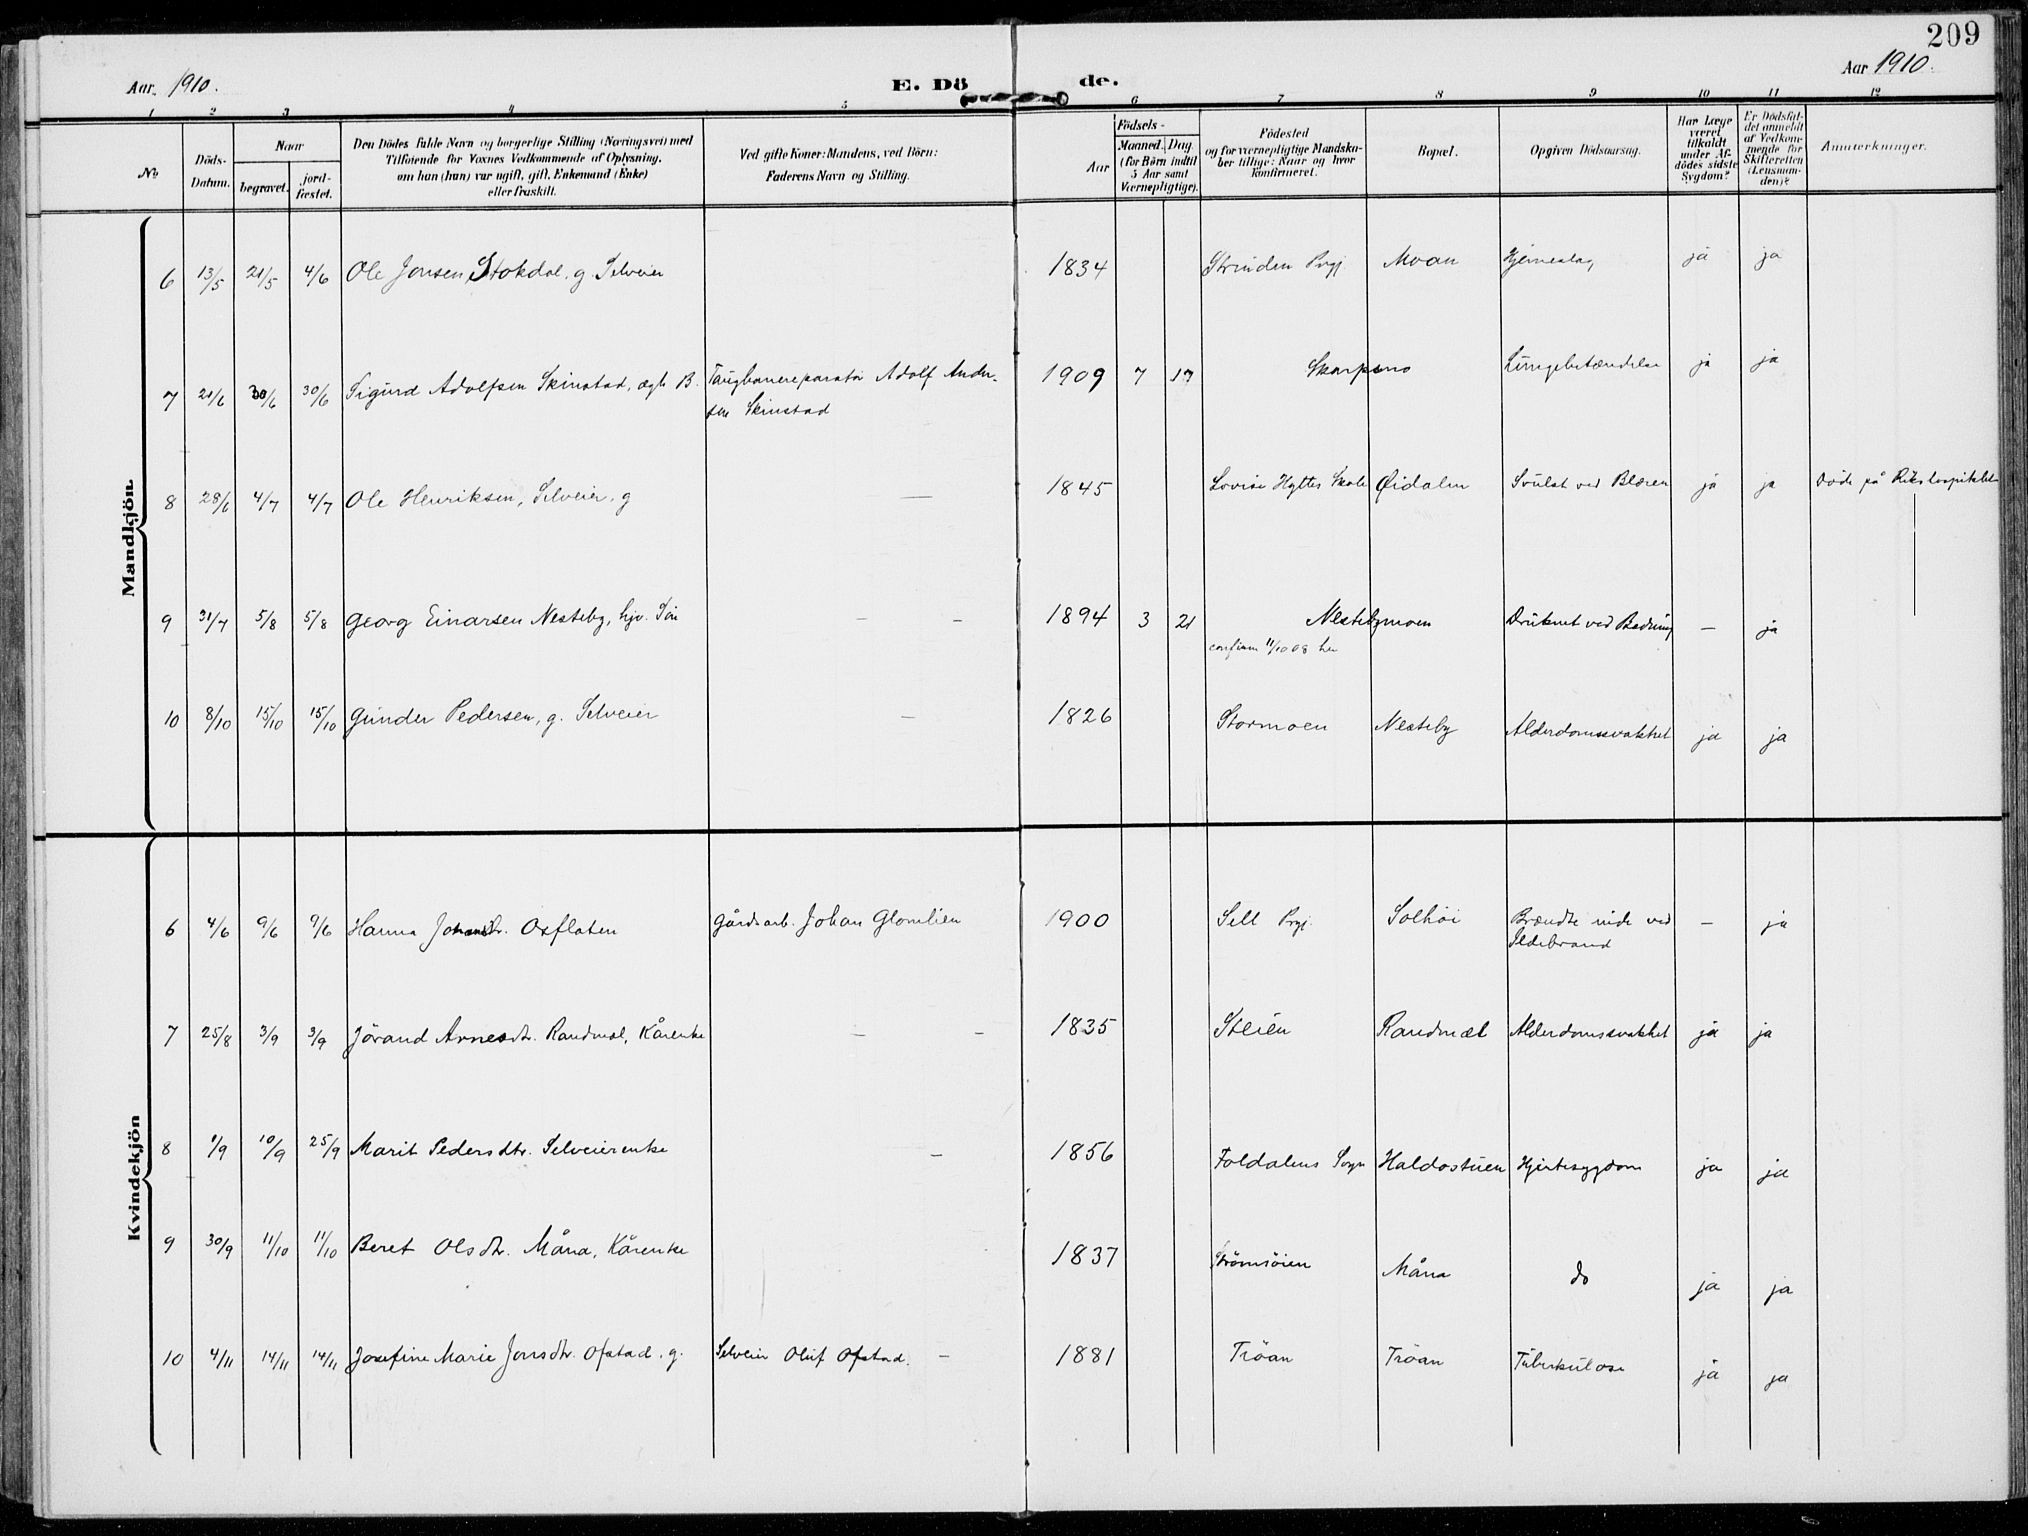 209
Aar. 1910.
E. Dö de.
Aar 1910.
1 2 3 4 5 6 7 8 9 10 11 12
No
Döds-Datum.
Naar
begravet.
jord-fæstet.
Den Dödes fulde Navn og borgerlige Stilling (Næringsvei) med
Tilföiende for Voxnes Vedkommende af Oplysning,
om han (hun) var ugift, gift, Enkemand (Enke)
eller fraskilt.
Ved gifte Koner: Mandens, ved Börn:
Faderens Navn og Stilling.
Födsels-
Aar
Maaned. Dag.
(for Börn indtil
5 Aar samt
Værnepligtige).
Födested
og for værnepligtige Mandska-
ber tillige: Naar og hvor
konfirmeret.
Bopæl.
Opgiven Dödsaarsag.
Har Læge
været
tilkaldt
under Af-
dödes sidste
Sygdom?
Er Dödsfal-
det anmeldt
af Vedkom-
mende for
Skifteretten
(Lensman-
den)?
Anmerkninger.
Mandkjön.
6 13/5 21/5 4/6 Ole Jonsen Stokdal, g. Selveier 1834 Strinden Prgj. Moan Hjerneslag ja ja
7 21/6 30/6 30/6 Sigurd Adolfsen Skinstad, ægte B. Taugbanereparatör Adolf Ander- 1909 7 17 Skarpsno Lungebetændelse ja ja
sen Skinstad
8 28/6 4/7 4/7 Ole Henriksen, Selveier, g — 1845 Lovise Hyttes Skole Øidalen Svulst ved Blæren ja ja Döde på Rikshospitalet
9 31/7 5/8 5/8 Georg Einarsen Nesteby, hjv. Sön — — 1894 3 21 Nestebymoen Druknet ved Badning — ja
confirm 11/10 08 her
10 8/10 15/10 15/10 Gunder Pedersen, g. Selveier — 1826 Stormoen Nesteby Alderdomssvakhet ja ja
Kvindekjön
6 4/6 9/6 9/6 Hanna Johansdtr. Oxflaten Gårdsarb. Johan Glomlien 1900 Sell Prgj. Solhöi Brændte inde ved — ja
Ildebrand
7 25/8 3/9 3/9 Jörand Arnesdtr. Randmæl, Kårenke — — 1835 Steien Randmæl Alderdomssvakhet ja ja
8 1/9 10/9 25/9 Marit Pedersdtr. Selveierenke — 1856 Foldalens Sogn Haldostuen Hjertesygdom ja ja
9 30/9 11/10 11/10 Beret Olsdtr. Måna, Kårenke 1837 Strömsöien Måna do ja ja
10 4/11 14/11 14/11 Josefine Marie Jonsdtr. Ofstad. g. Selveier Oluf Ofstad. — 1881 Tröan Tröan Tuberkulose ja ja